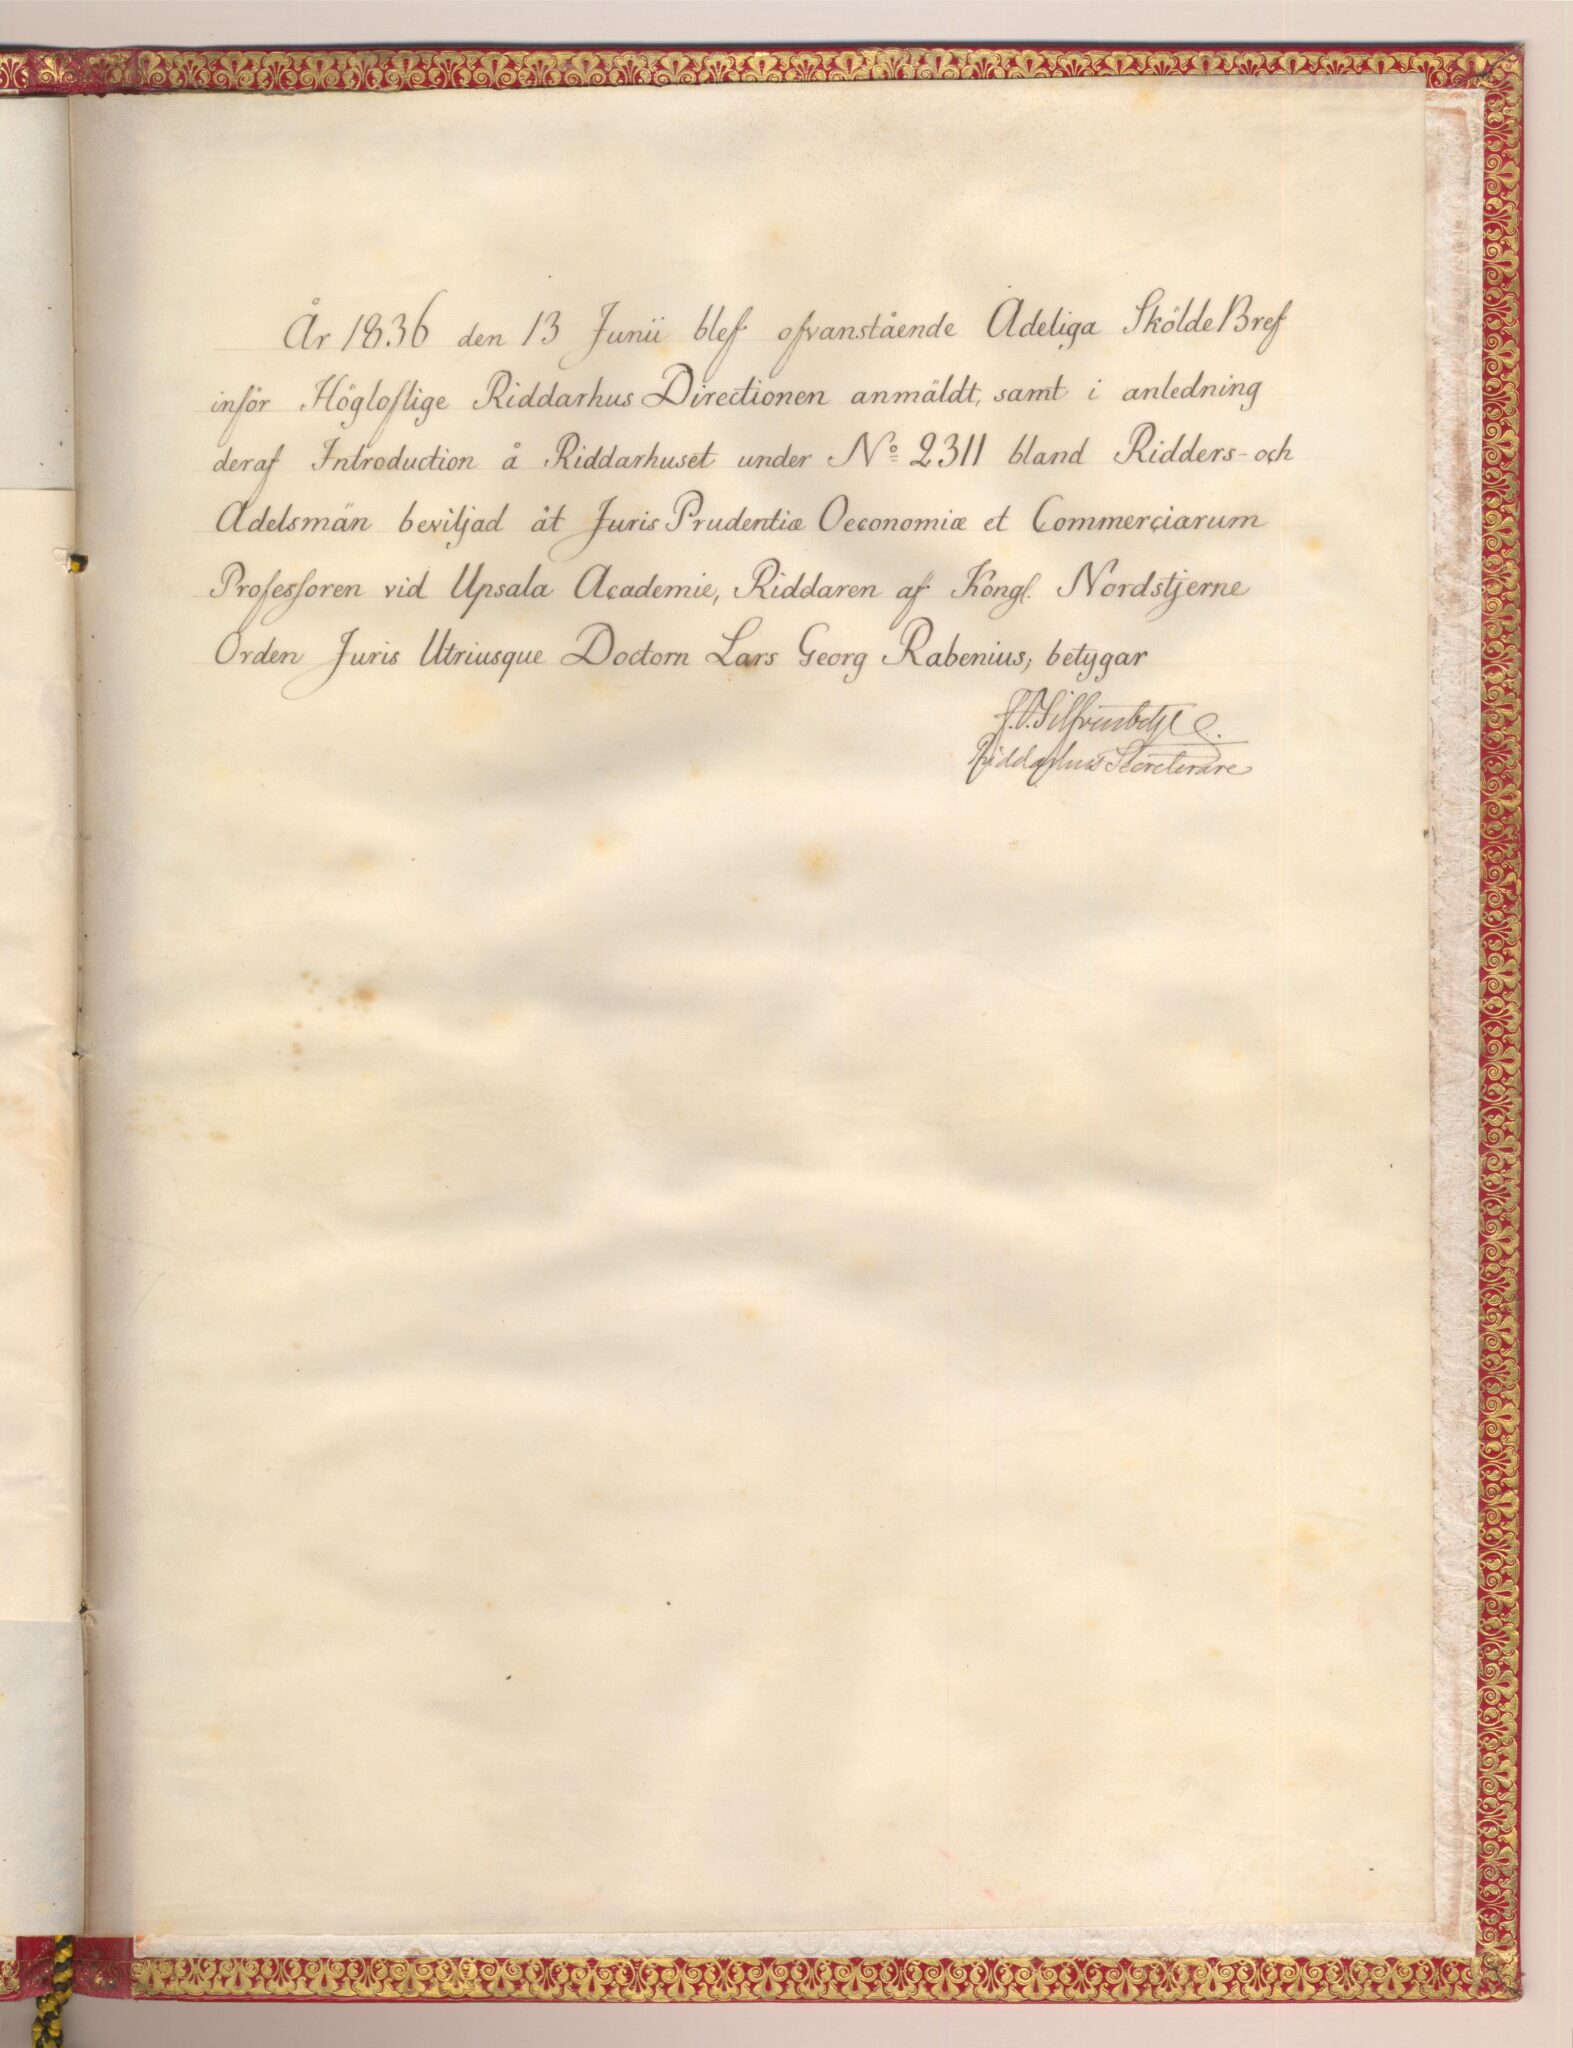 År 1836 den 13 Junii blef ofvanstående Adeliga SköldeBref
inför Högloflige Riddarhus Directionen anmäldt, samt i anledning
deraf Introduction å Riddarhuset under No 2311 bland Ridders- och
Adelsmän beviljad åt Juris Prudentiæ Oeconomiæ et Commerciarum
Professoren vid Upsala Academie, Riddaren af Kongl. Nordstjerne
Orden Juris Utriusque Doctorn Lars Georg Rabenius; betygar
Riddarhus Secreterare